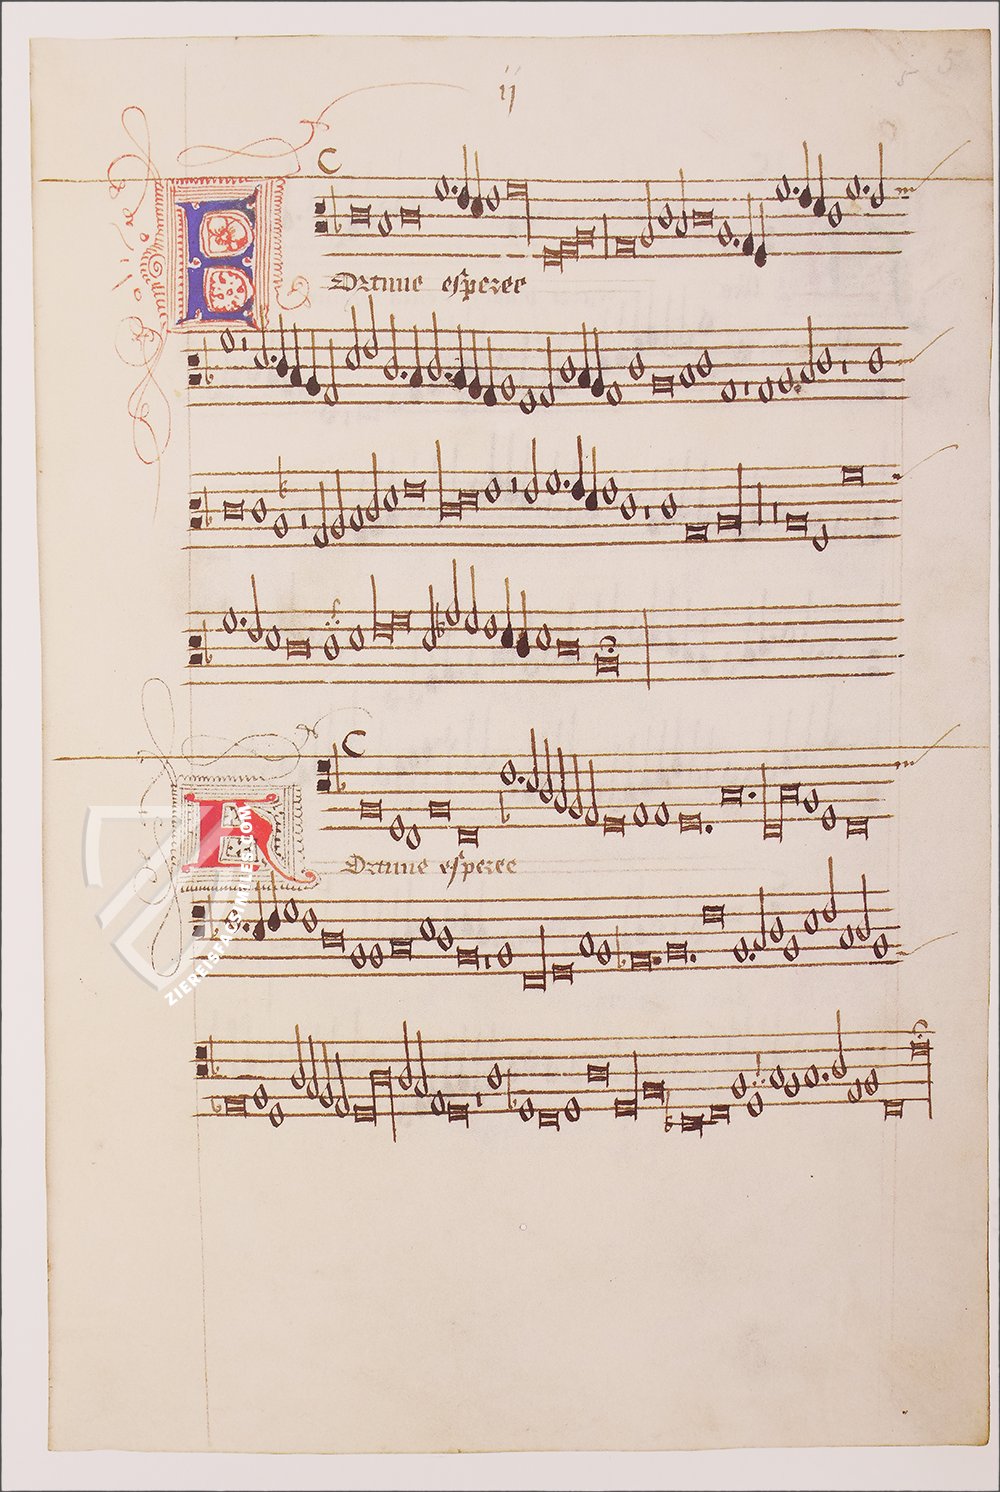 ij
5
Fortune esperee
Fortune esperee
ZIEREISFACSIMILES.COM